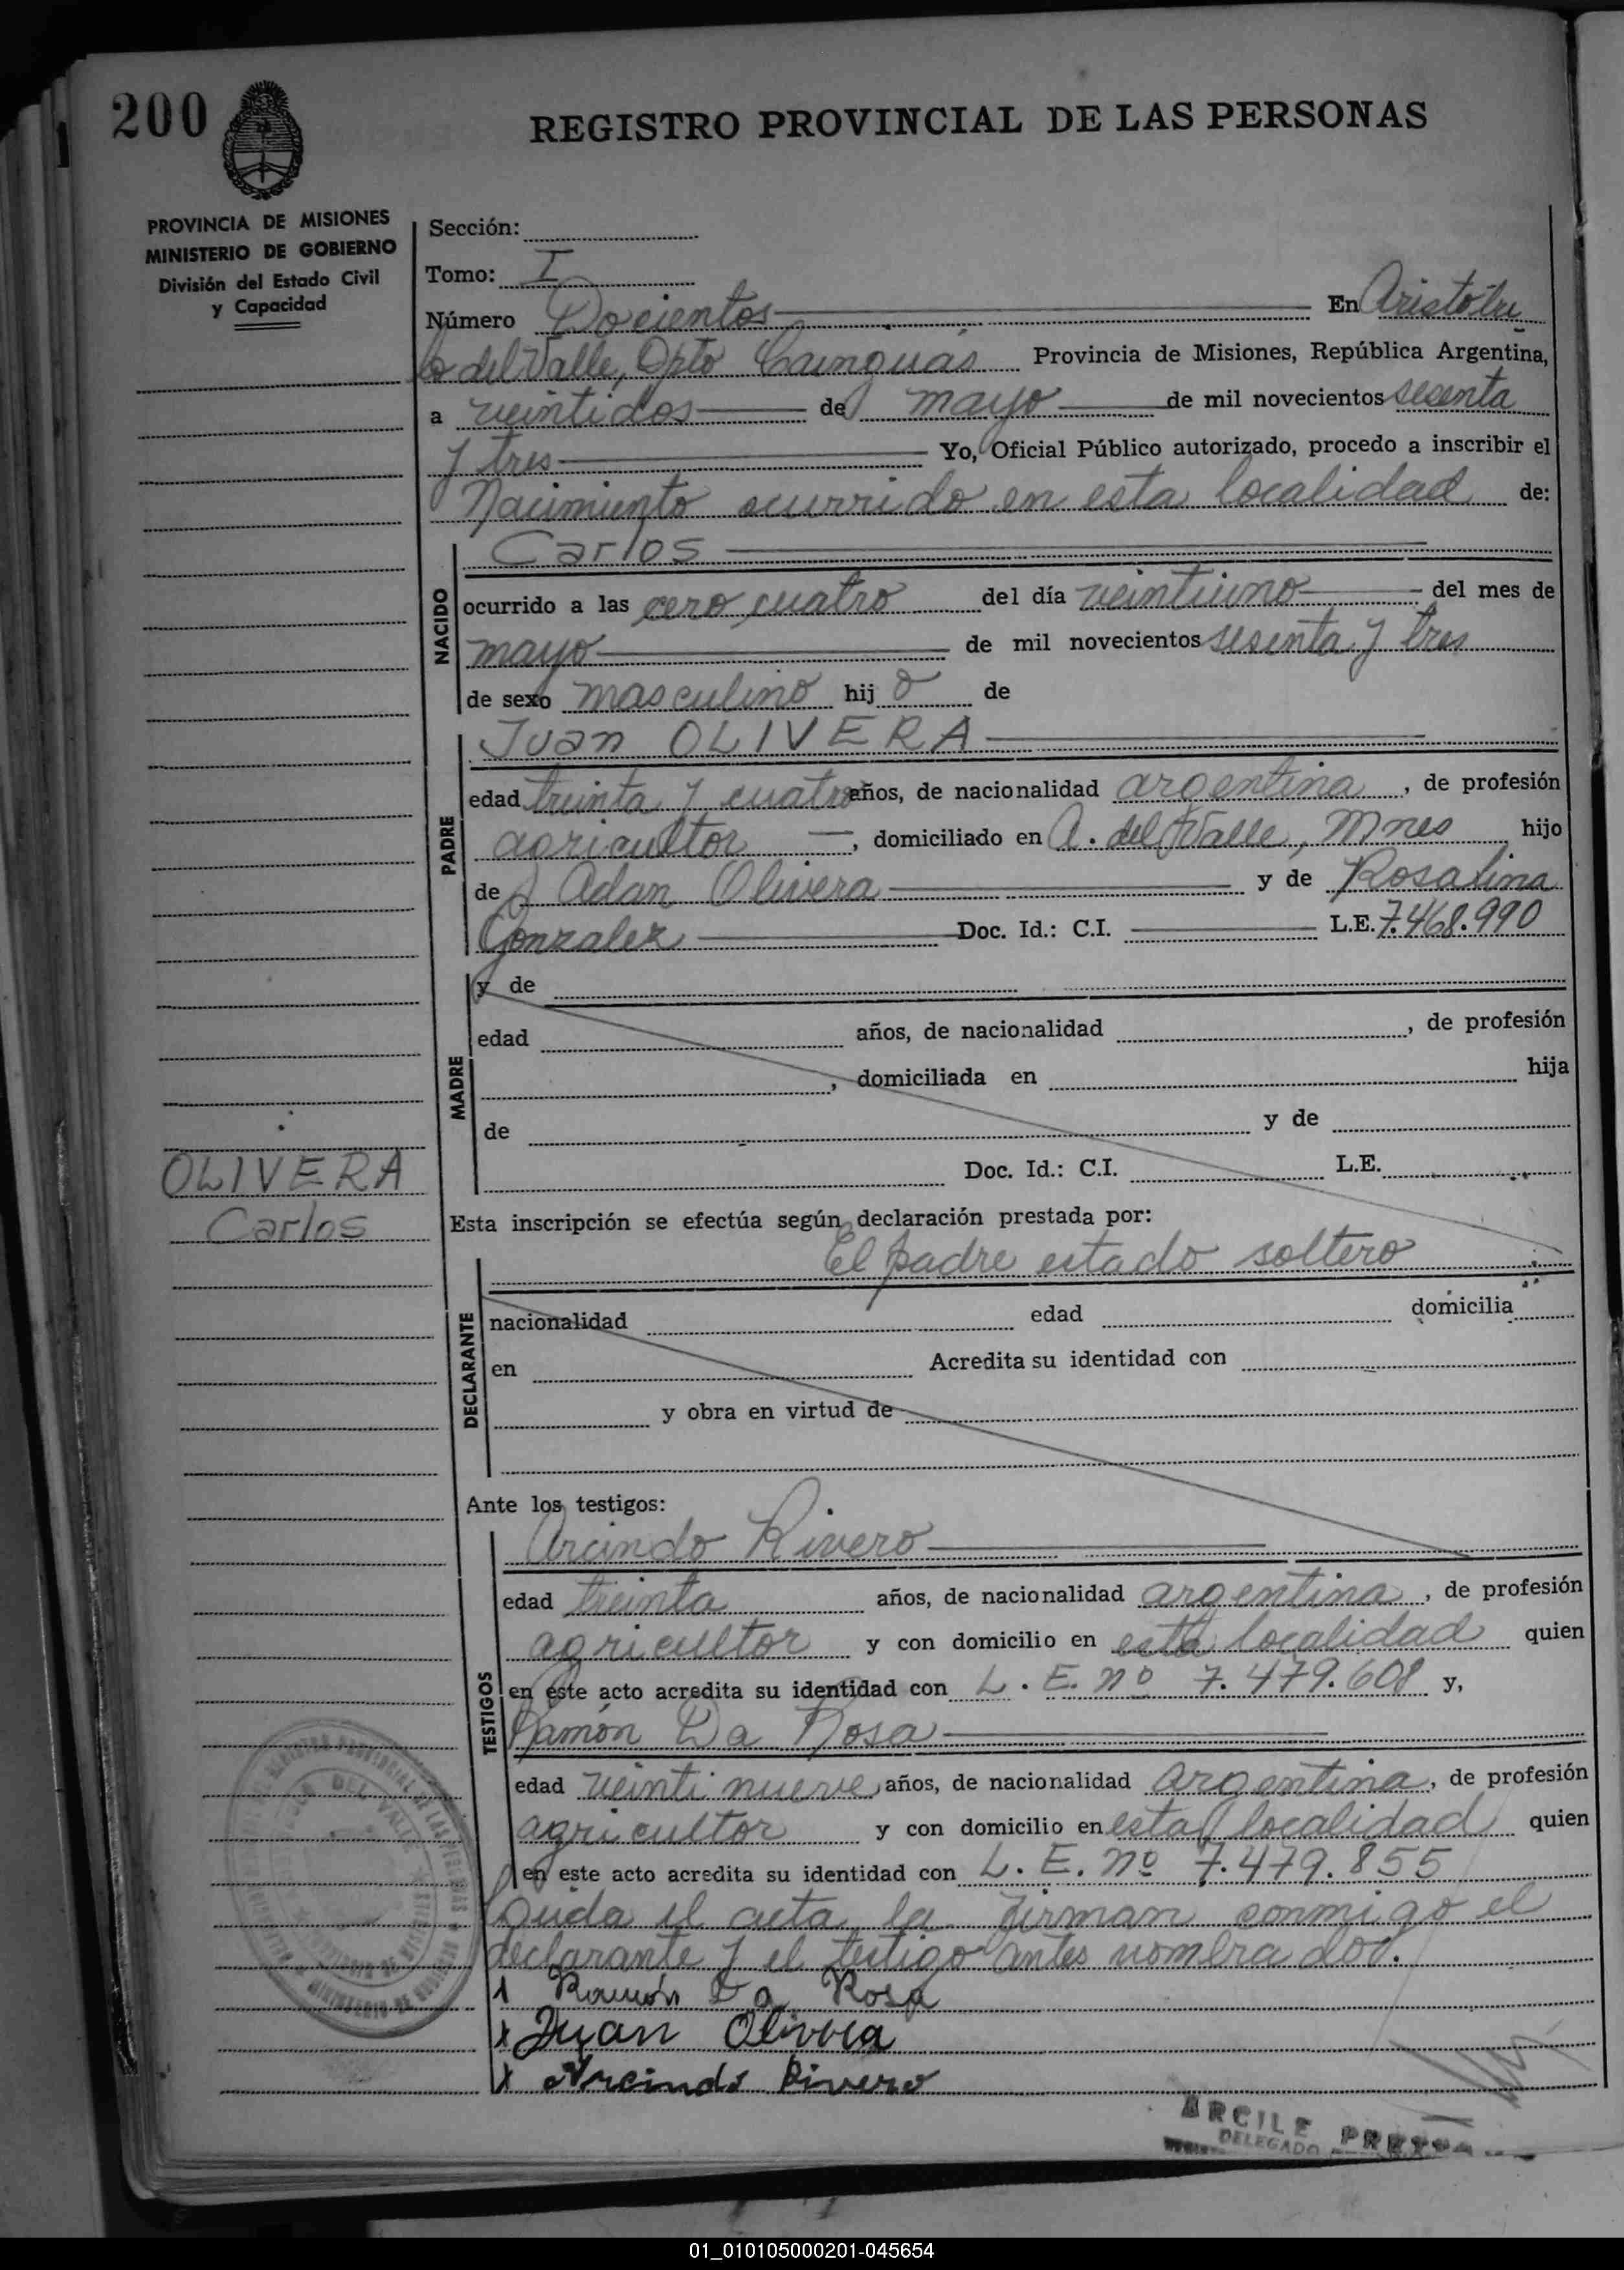 200
REGISTRO PROVINCIAL DE LAS PERSONAS
PROVINCIA DE MISIONES
MINISTERIO DE GOBIERNO
División del Estado Civil
y Capacidad
Sección:
Tomo: I
Número Docientos En Aristóbu
lo del Valle, Dpto Cainguás Provincia de Misiones, República Argentina,
a veintidos de mayo de mil novecientos sesenta
y tres Yo, Oficial Público autorizado, procedo a inscribir el
Nacimiento ocurrido en esta localidad de:
NACIDO
Carlos
ocurrido a las cero cuatro del día veintiuno del mes de
mayo de mil novecientos sesenta y tres
de sexo masculino hij o de
PADRE
Juan OLIVERA
edad treinta y cuatro años, de nacionalidad argentina, de profesión
agricultor, domiciliado en A. del Valle, Mnes hijo
de Adan Olivera y de Rosalina
Gonzalez Doc. Id.: C.I. L.E. 7.468.990
MADRE
y de
edad años, de nacionalidad , de profesión
, domiciliada en hija
de y de
Doc. Id.: C.I. L.E.
OLIVERA
Carlos
Esta inscripción se efectúa según declaración prestada por:
DECLARANTE
El padre estado soltero
nacionalidad edad domicilia
en Acredita su identidad con
y obra en virtud de
Ante los testigos:
TESTIGOS
Arcindo Rivero
edad treinta años, de nacionalidad argentina, de profesión
agricultor y con domicilio en esta localidad quien
en este acto acredita su identidad con L. E. nº 7.479.608 y,
Ramón Da Rosa
edad veintinueve años, de nacionalidad argentina, de profesión
agricultor y con domicilio en esta localidad quien
en este acto acredita su identidad con L. E. nº 7.479.855
el acta, la firman conmigo el
declarante y el testigo antes nombrados.
Ramón Da Rosa
x Juan Olivera
x Arcindo Rivero
DEL VALLE
ARCILE
DELEGADO
01_010105000201-045654